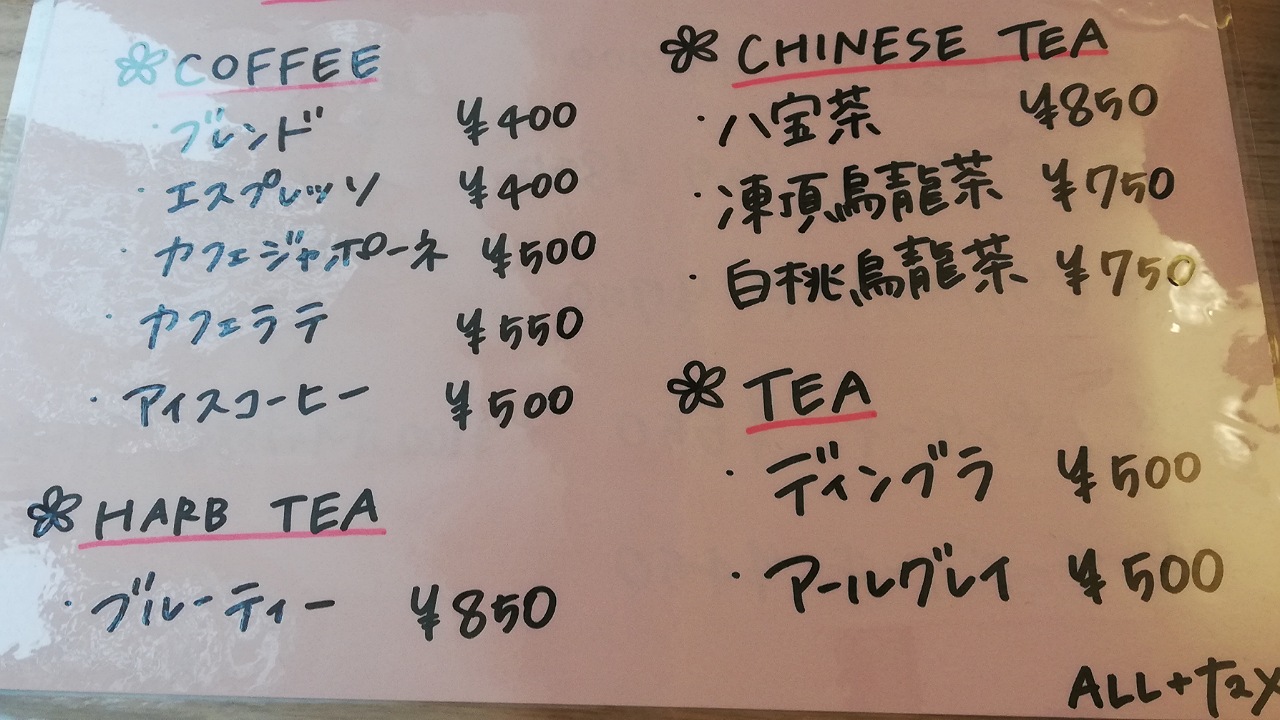 COFFEE
・ブレンド ¥400
・エスプレッソ ¥400
・カフェジャポーネ ¥500
・カフェラテ ¥550
・アイスコーヒー ¥500
HARB TEA
・ブルーティー ¥850
CHINESE TEA
・八宝茶 ¥850
・凍頂烏龍茶 ¥750
・白桃烏龍茶 ¥750
TEA
・ディンブラ ¥500
・アールグレイ ¥500
ALL+Tax